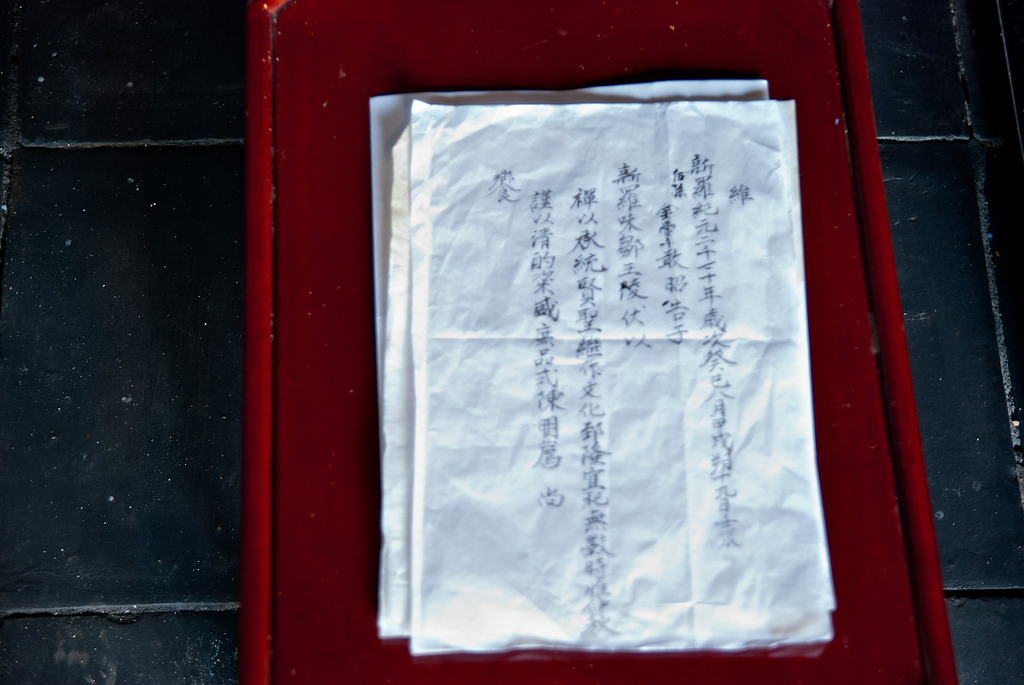 維
新羅紀元二千七十年歲次癸巳八月甲戌朔十九日壬辰
后孫 敢昭告于
新羅味鄒王陵伏以
禪以承統賢聖繼作文化郅隆宜祀無斁時維仲秋
謹以清酌粢盛庶品式陳明薦 尚
饗